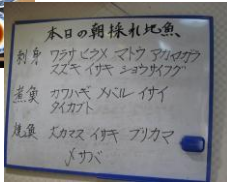 本日の朝採れ地魚
刺身 ワラサ ヒラメ マトウ アカヤガラ
スズキ イサキ ショウサイフグ
煮魚 カワハギ メバル イサキ
タイカブト
焼魚 大カマス イサキ ブリカマ
〆サバ